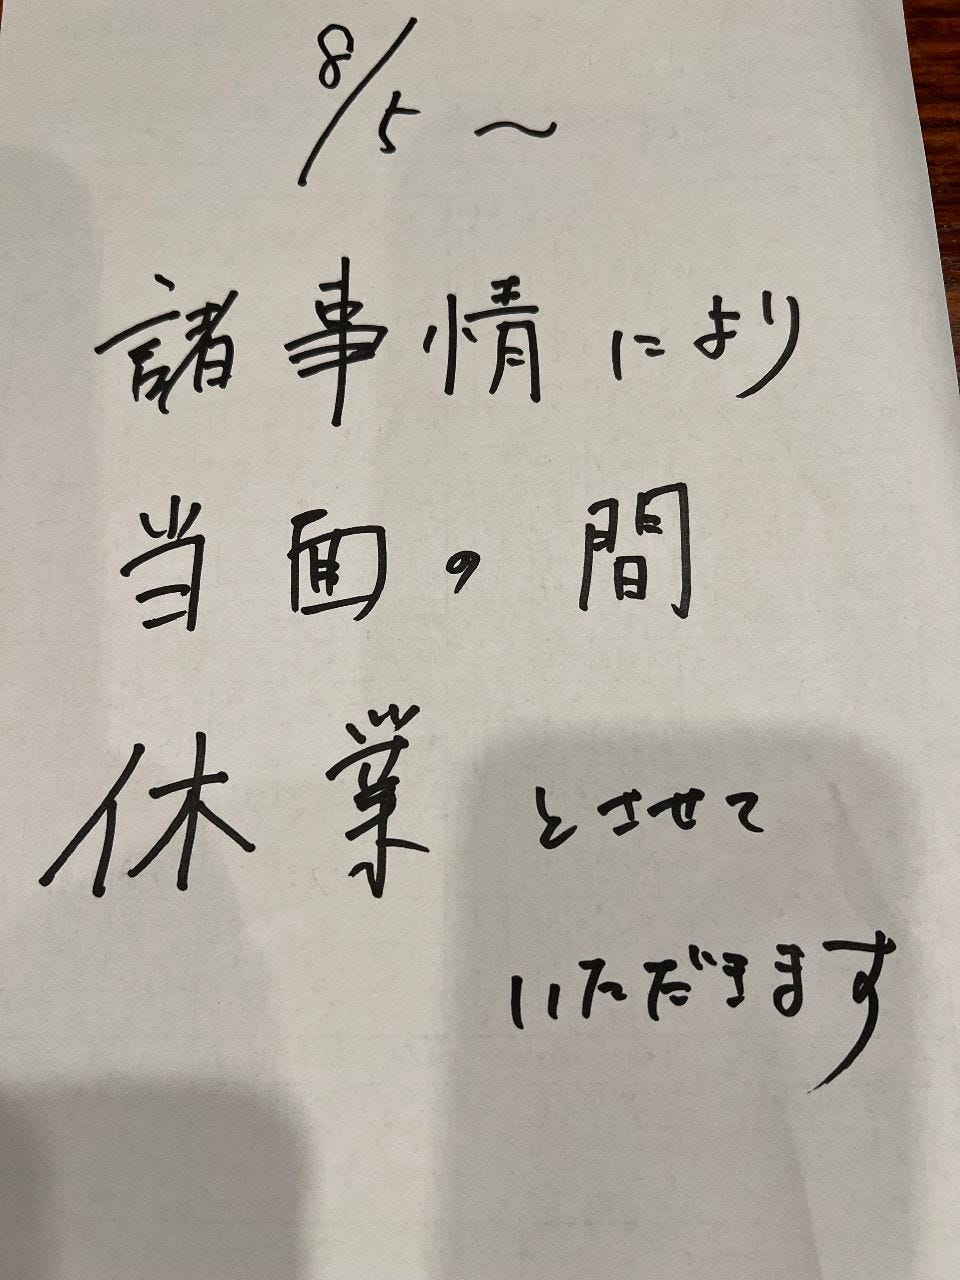 8/5 〜
諸事情により
当面の間
休業とさせて
いただきます